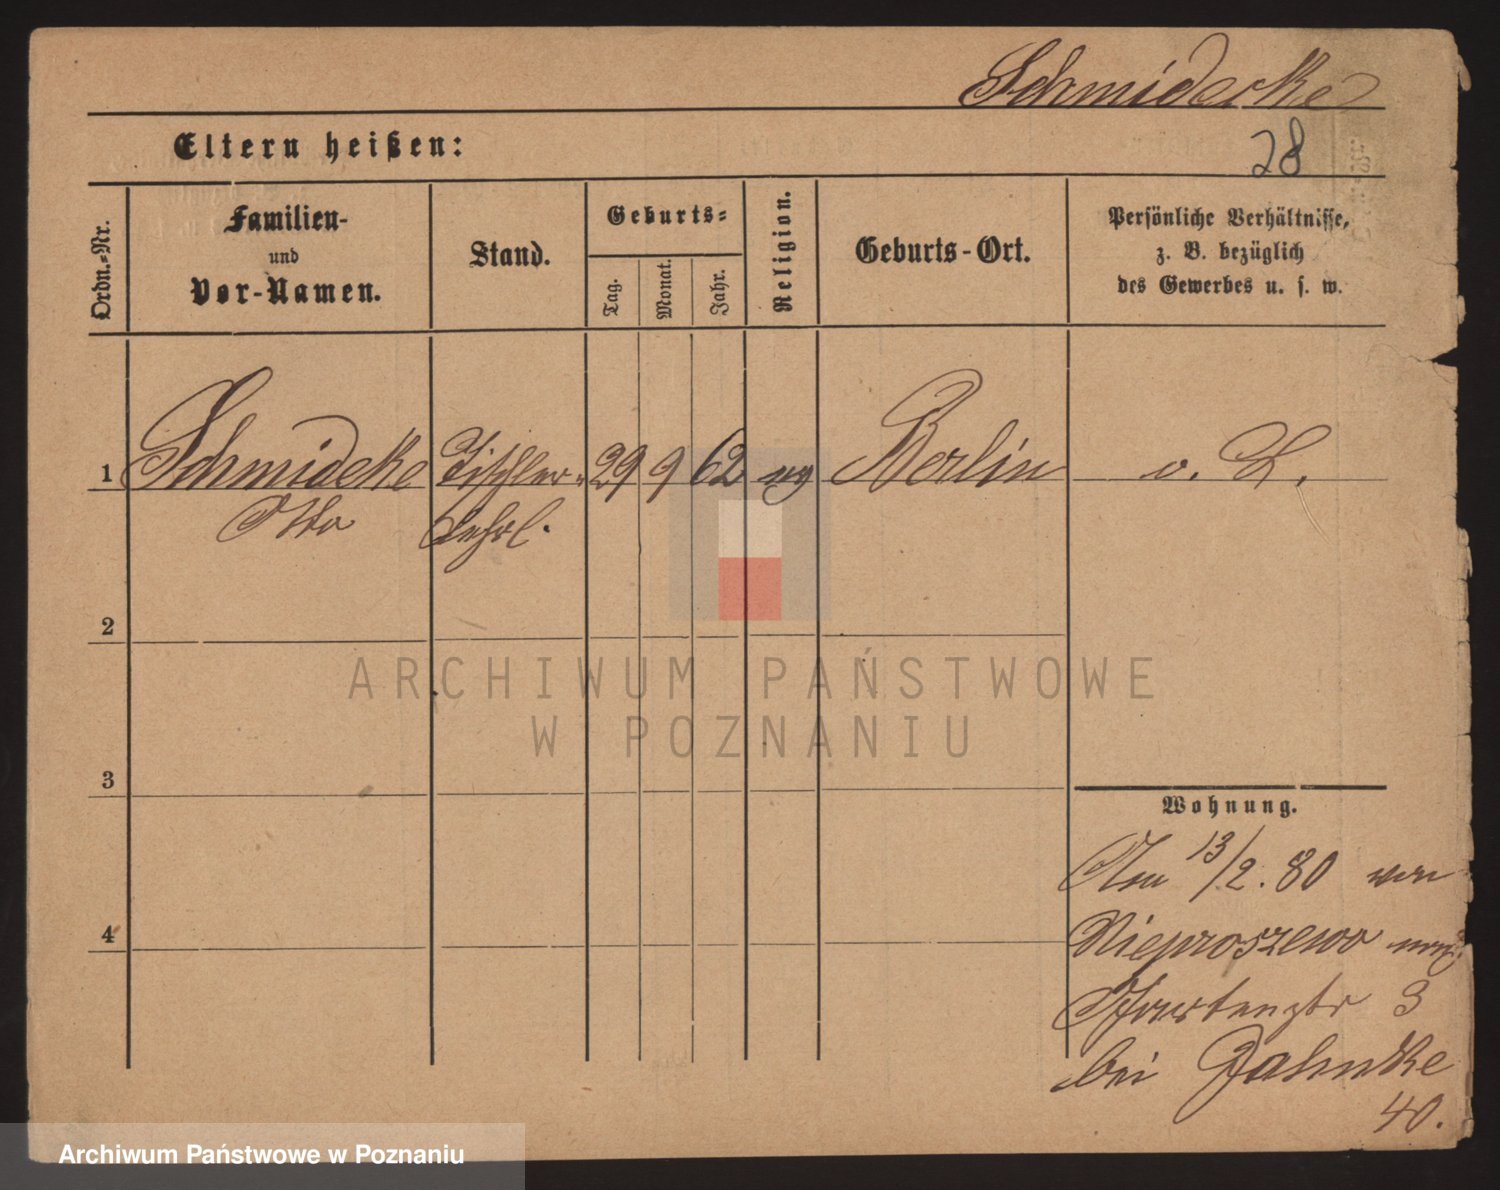 Schmidecke
Eltern heißen:
28
Ordn.=Nr.
Familien-
und
Vor-Namen.
Stand.
Geburts=
Tag.
Monat.
Jahr.
Religion.
Geburts-Ort.
Persönliche Verhältnisse,
z. B. bezüglich
des Gewerbes u. s. w.
1 Schmideke Tischler= 29 9 62 Berlin v. L.
Otto Lehrl.
2
3
4
Wohnung.
13/2. 80 von
Nieproszewo
3
bei Jahnke
40.
ARCHIWUM PAŃSTWOWE
W POZNANIU
Archiwum Państwowe w Poznaniu